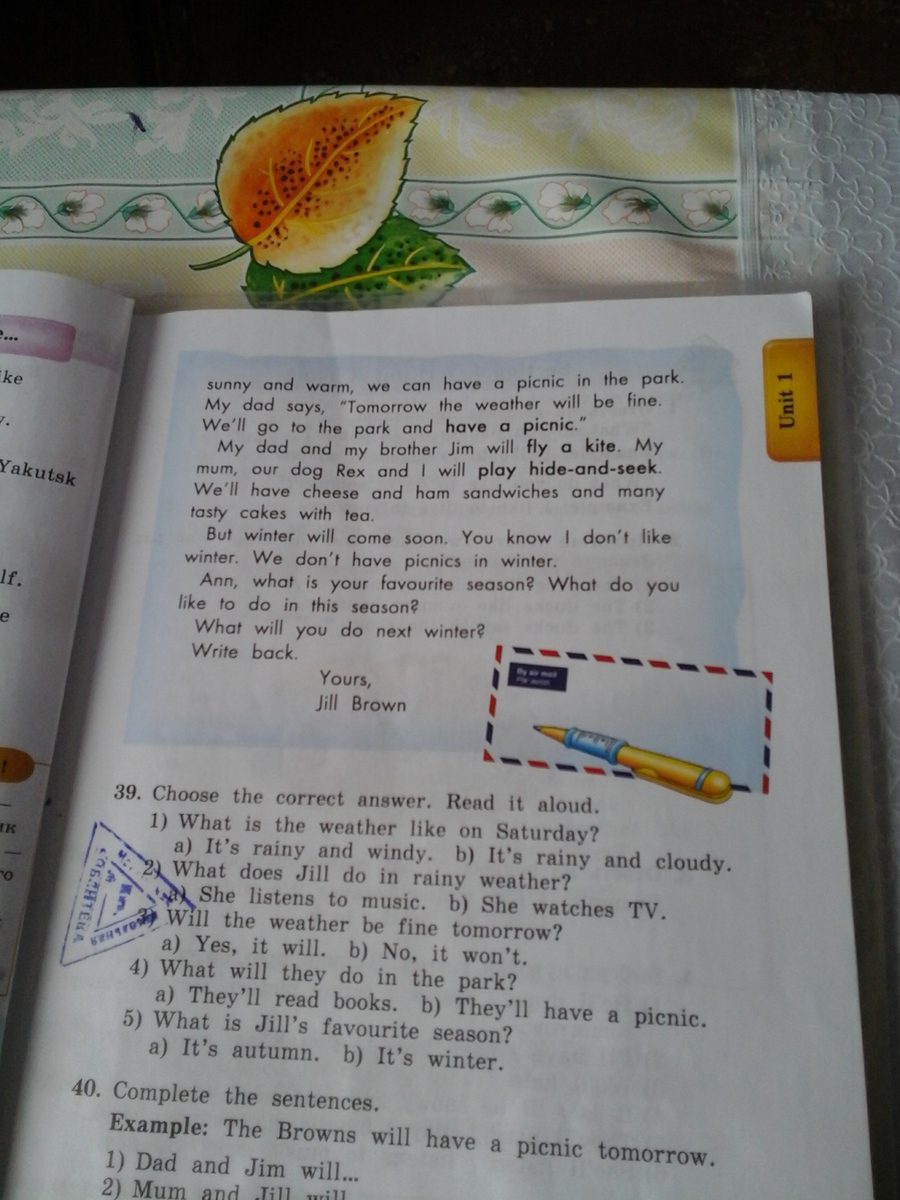 e...
ke
y.
Yakutsk
lf.
e
!
ик
го
sunny and warm, we can have a picnic in the park.
My dad says, “Tomorrow the weather will be fine.
We’ll go to the park and have a picnic.”
My dad and my brother Jim will fly a kite. My
mum, our dog Rex and I will play hide-and-seek.
We’ll have cheese and ham sandwiches and many
tasty cakes with tea.
But winter will come soon. You know I don’t like
winter. We don’t have picnics in winter.
Ann, what is your favourite season? What do you
like to do in this season?
What will you do next winter?
Write back.
Yours,
Jill Brown
By air mail
Par avion
Unit 1
39. Choose the correct answer. Read it aloud.
1) What is the weather like on Saturday?
a) It’s rainy and windy. b) It’s rainy and cloudy.
2) What does Jill do in rainy weather?
a) She listens to music. b) She watches TV.
3) Will the weather be fine tomorrow?
a) Yes, it will. b) No, it won’t.
4) What will they do in the park?
a) They’ll read books. b) They’ll have a picnic.
5) What is Jill’s favourite season?
a) It’s autumn. b) It’s winter.
40. Complete the sentences.
Example: The Browns will have a picnic tomorrow.
1) Dad and Jim will...
2) Mum and Jill will